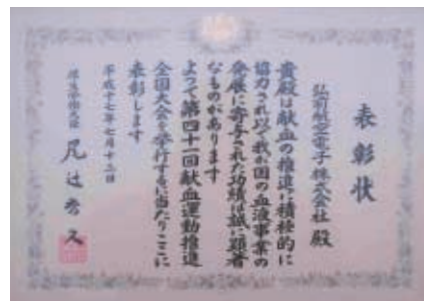 表彰状
弘前航空電子株式会社 殿
貴殿は献血の推進に積極的に
協力され以て我が国の血液事業の
発展に寄与された功績は誠に顕著
なものがあります
よって第四十一回献血運動推進
全国大会を挙行するに当たりここに
表彰します
平成十七年七月十三日
厚生労働大臣 尾辻秀久